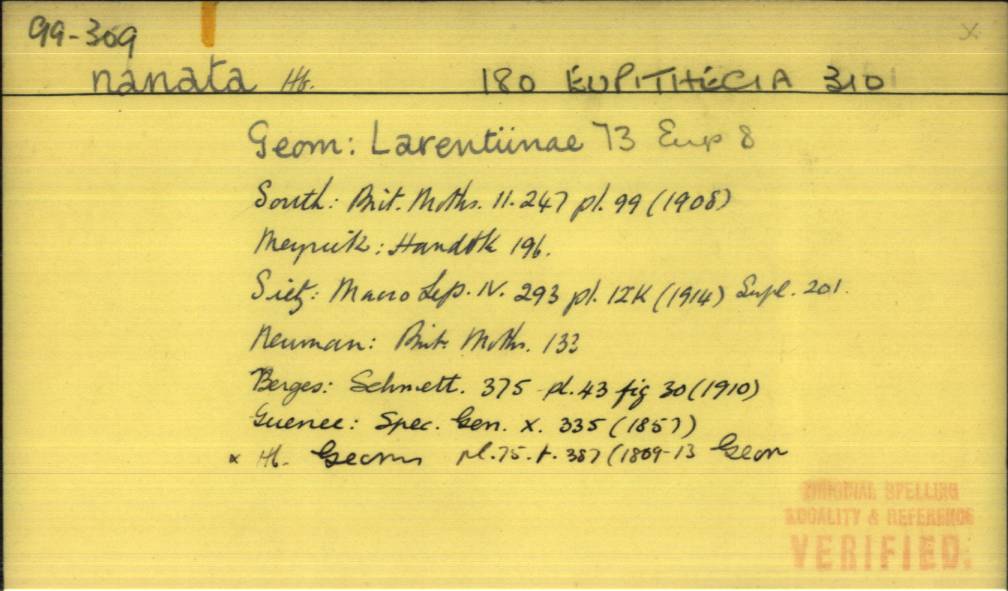 99-309 x
nanata Hb. 180 EUPITHECIA 310
Geom: Larentiinae 73 Eup 8
South: Brit. Moths. II. 247 pl. 99 (1908)
Meyrick: Handbk 196.
Sietz: Macro Lep. IV. 293 pl. 12K (1914) Supl. 201.
Neuman: Brit. Moths. 133
Berges: Schmett. 375 pl. 43 fig 30 (1910)
Guenee: Spec. Gen. X. 335 (1857)
x Hb. Geom pl. 75. f. 387 (1809-13 Geom
ORIGINAL SPELLING
LOCALITY & REFERENCE
VERIFIED.